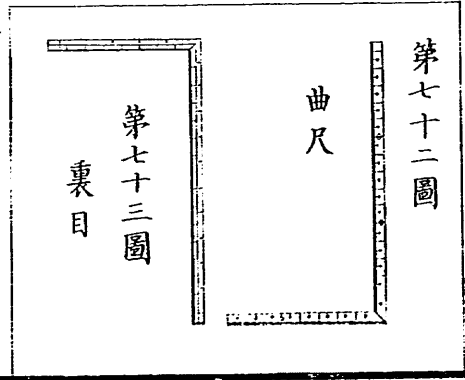 第七十二圖
曲尺
第七十三圖
裏目